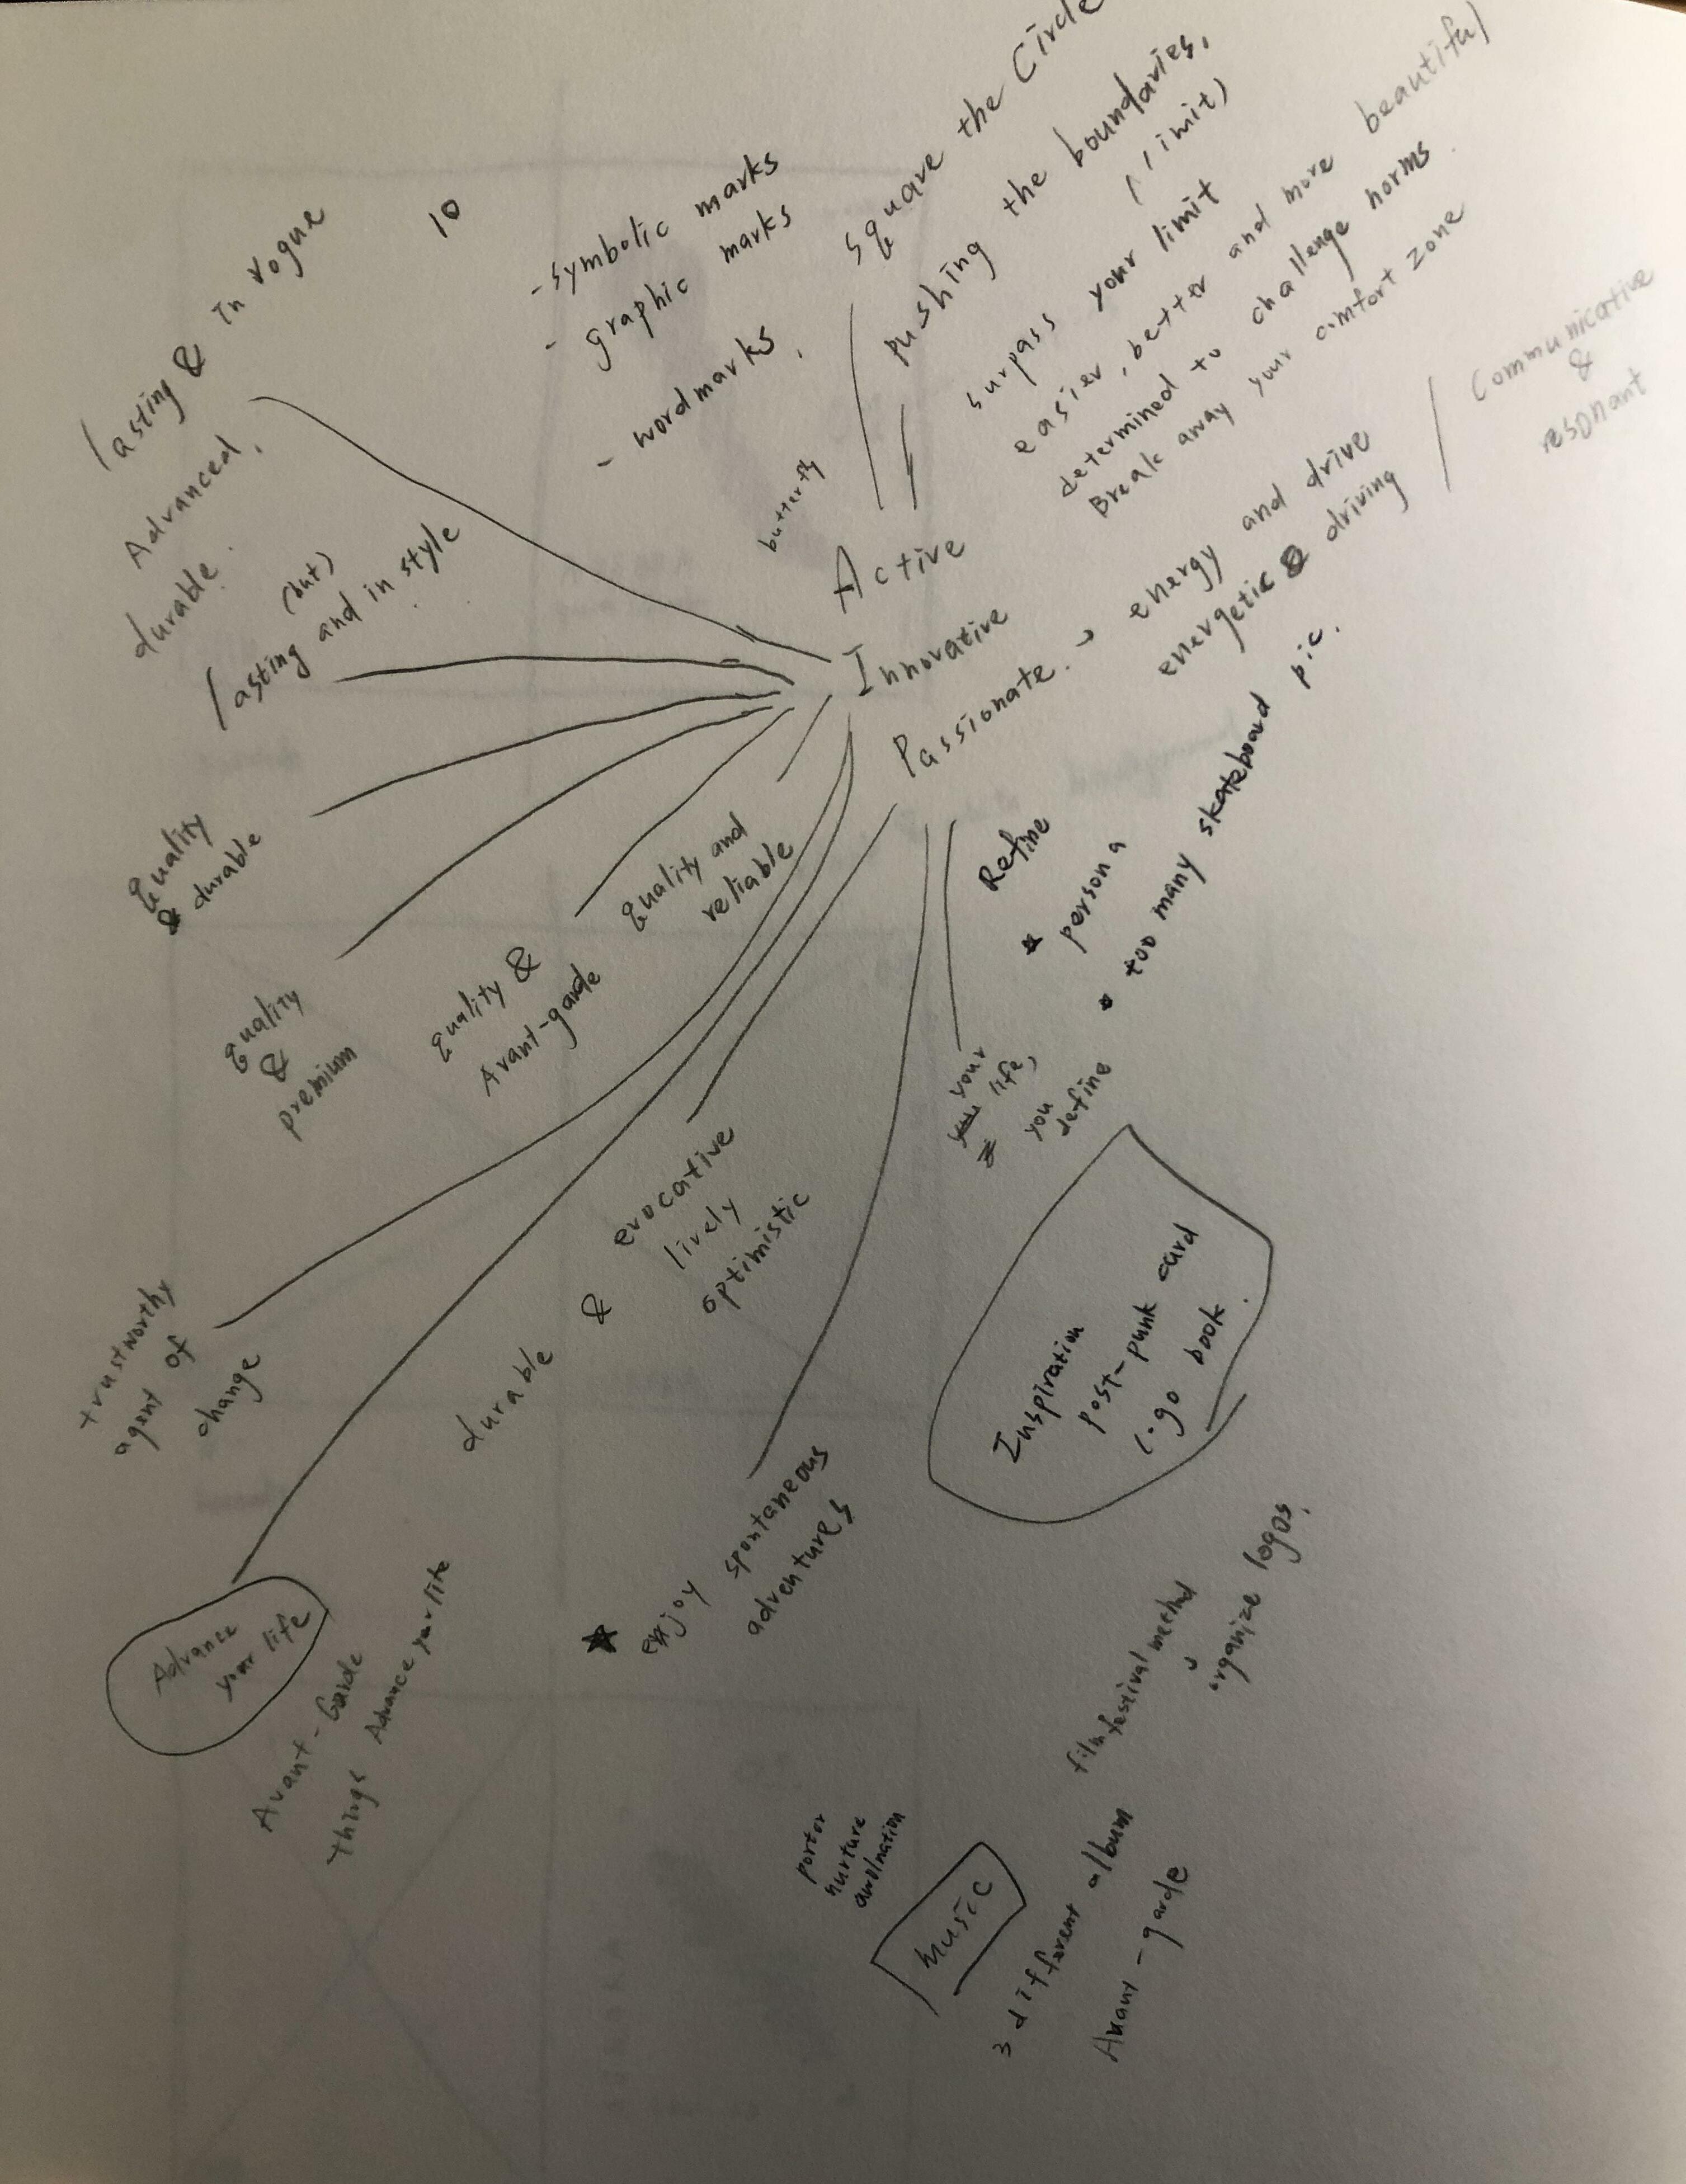 Square the Circle
pushing the boundaries,
(limit)
surpass your limit
easier, better and more beautiful
determined to challenge norms.
Break away your comfort zone
Communicative
&
resonant
10
- symbolic marks
- graphic marks
- wordmarks.
butterfly
lasting & in vogue
Advanced,
durable.
(but)
lasting and in style
Active
Innovative
Passionate. → energy and drive
energetic & driving
Quality
& durable
Quality
&
premium
Quality &
Avant-garde
Quality and
reliable
Refine
* persona
* too many skateboard pic.
your
life,
you
define
trustworthy
agent of
change
durable & evocative
lively
optimistic
Inspiration
post-punk card
logo book.
★ enjoy spontaneous
adventures
Advance
your life
Avant-Garde
things Advance your life
film festival method
organize logos.
porter
nurture
music
3 different album
Avant-garde